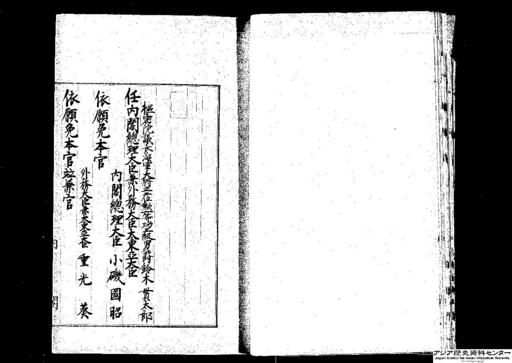 樞密院議長海軍大將正三位勲一等功三級男爵鈴木貫太郎
任内閣總理大臣兼外務大臣大東亞大臣
内閣總理大臣 小磯國昭
依願免本官
外務大臣兼大東亞大臣 重光葵
依願免本官竝兼官
内閣
アジア歴史資料センター
Japan Center for Asian Historical Records